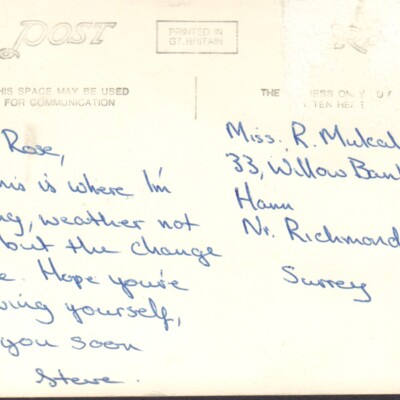 POST
PRINTED IN
GT. BRITAIN
HIS SPACE MAY BE USED
FOR COMMUNICATION
THE
ESS ONLY
TEN HERE
Rose,
his is where I'm
ng, weather not
but the change
e. Hope you're
ing yourself,
you soon
Steve.
Miss. R. Mulcal
33, Willow Bank
Ham
Nr. Richmond
Surrey